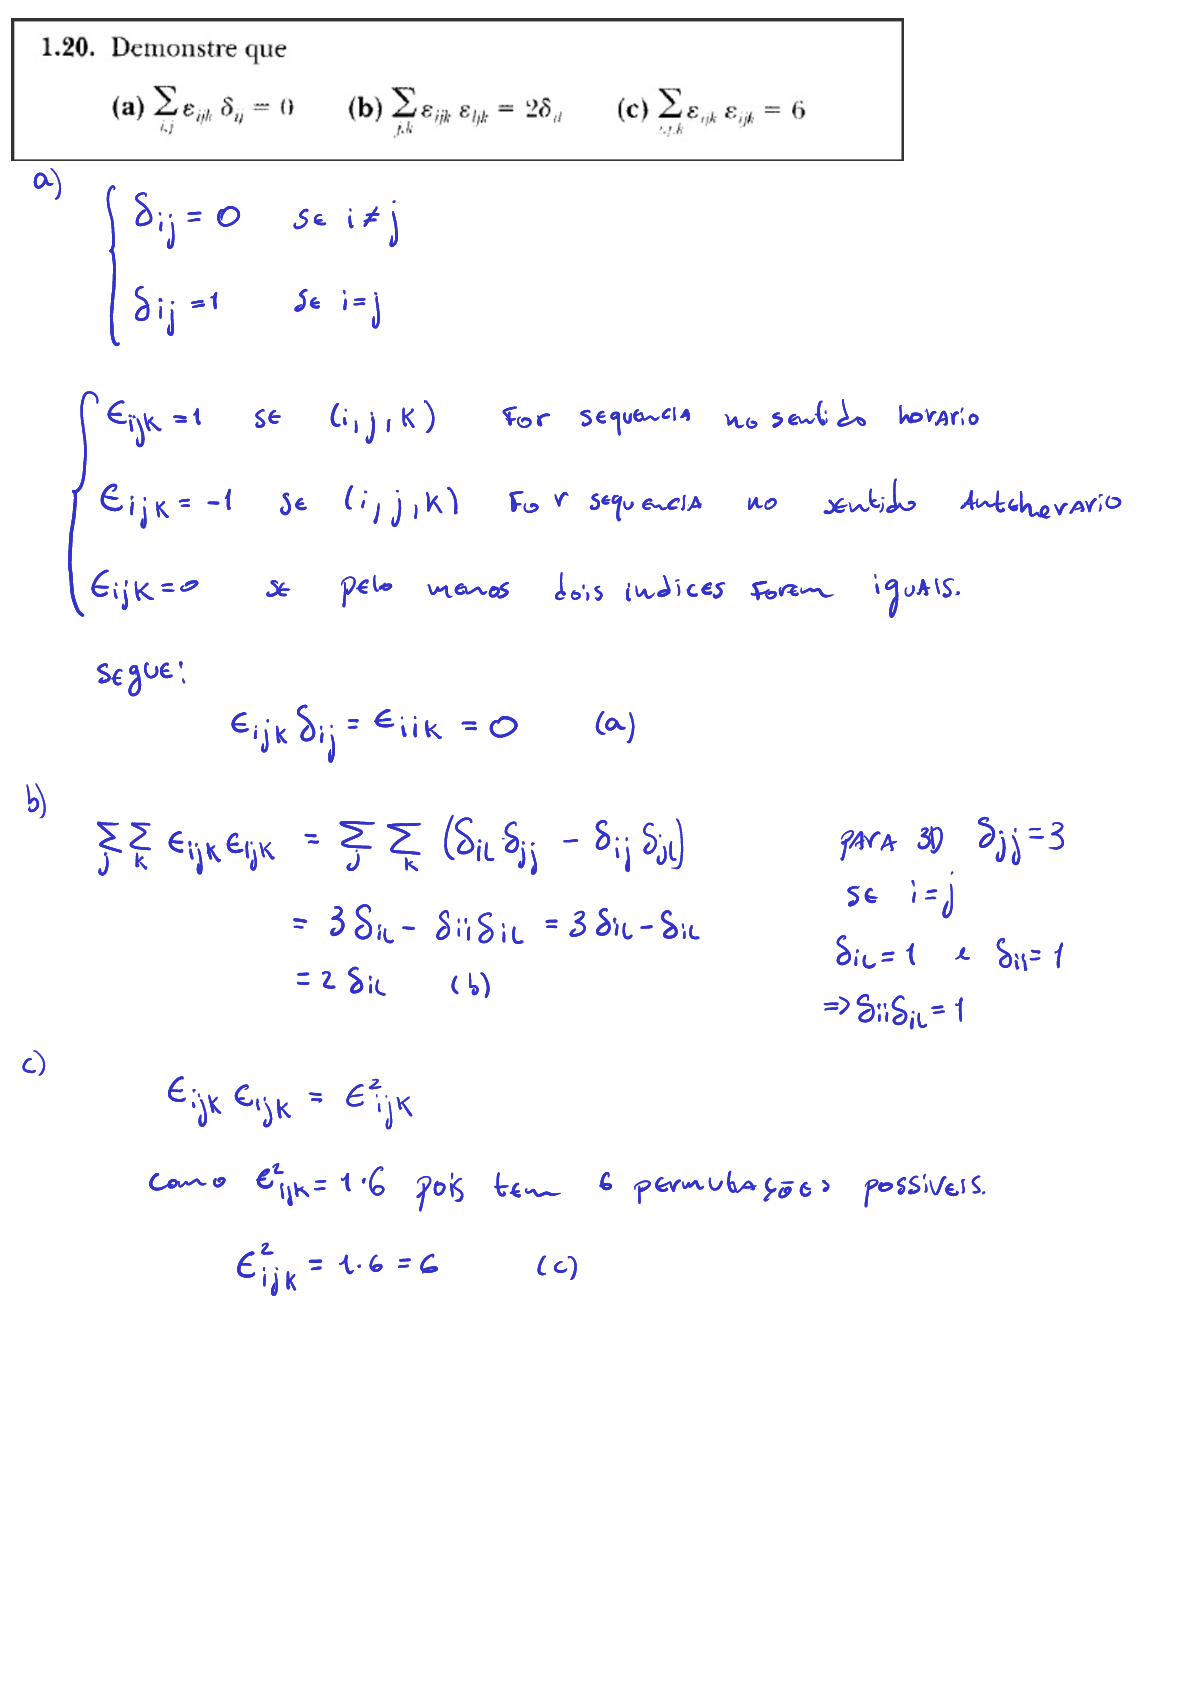 1.20. Demonstre que
(a) ∑_{i,j} ε_{ijk} δ_{ij} = 0 (b) ∑_{j,k} ε_{ijk} ε_{ljk} = 2δ_{il} (c) ∑_{i,j,k} ε_{ijk} ε_{ijk} = 6
a)
δ_{ij} = 0 se i ≠ j
δ_{ij} = 1 se i = j
ε_{ijk} = 1 se (i, j, k) for sequencia no sentido horario
ε_{ijk} = -1 se (i, j, k) for sequencia no sentido antihorario
ε_{ijk} = 0 se pelo menos dois indices forem iguais.
segue:
ε_{ijk} δ_{ij} = ε_{iik} = 0 (a)
b)
∑_j ∑_k ε_{ijk} ε_{ljk} = ∑_j ∑_k (δ_{il} δ_{jj} - δ_{ij} δ_{jl}) para 3D δ_{jj} = 3
se i = j
= 3 δ_{il} - δ_{ii} δ_{il} = 3 δ_{il} - δ_{il}
δ_{il} = 1 e δ_{ii} = 1
= 2 δ_{il} (b)
=> δ_{ii} δ_{il} = 1
c)
ε_{ijk} ε_{ijk} = ε²_{ijk}
como ε²_{ijk} = 1·6 pois tem 6 permutações possiveis.
ε²_{ijk} = 1·6 = 6 (c)